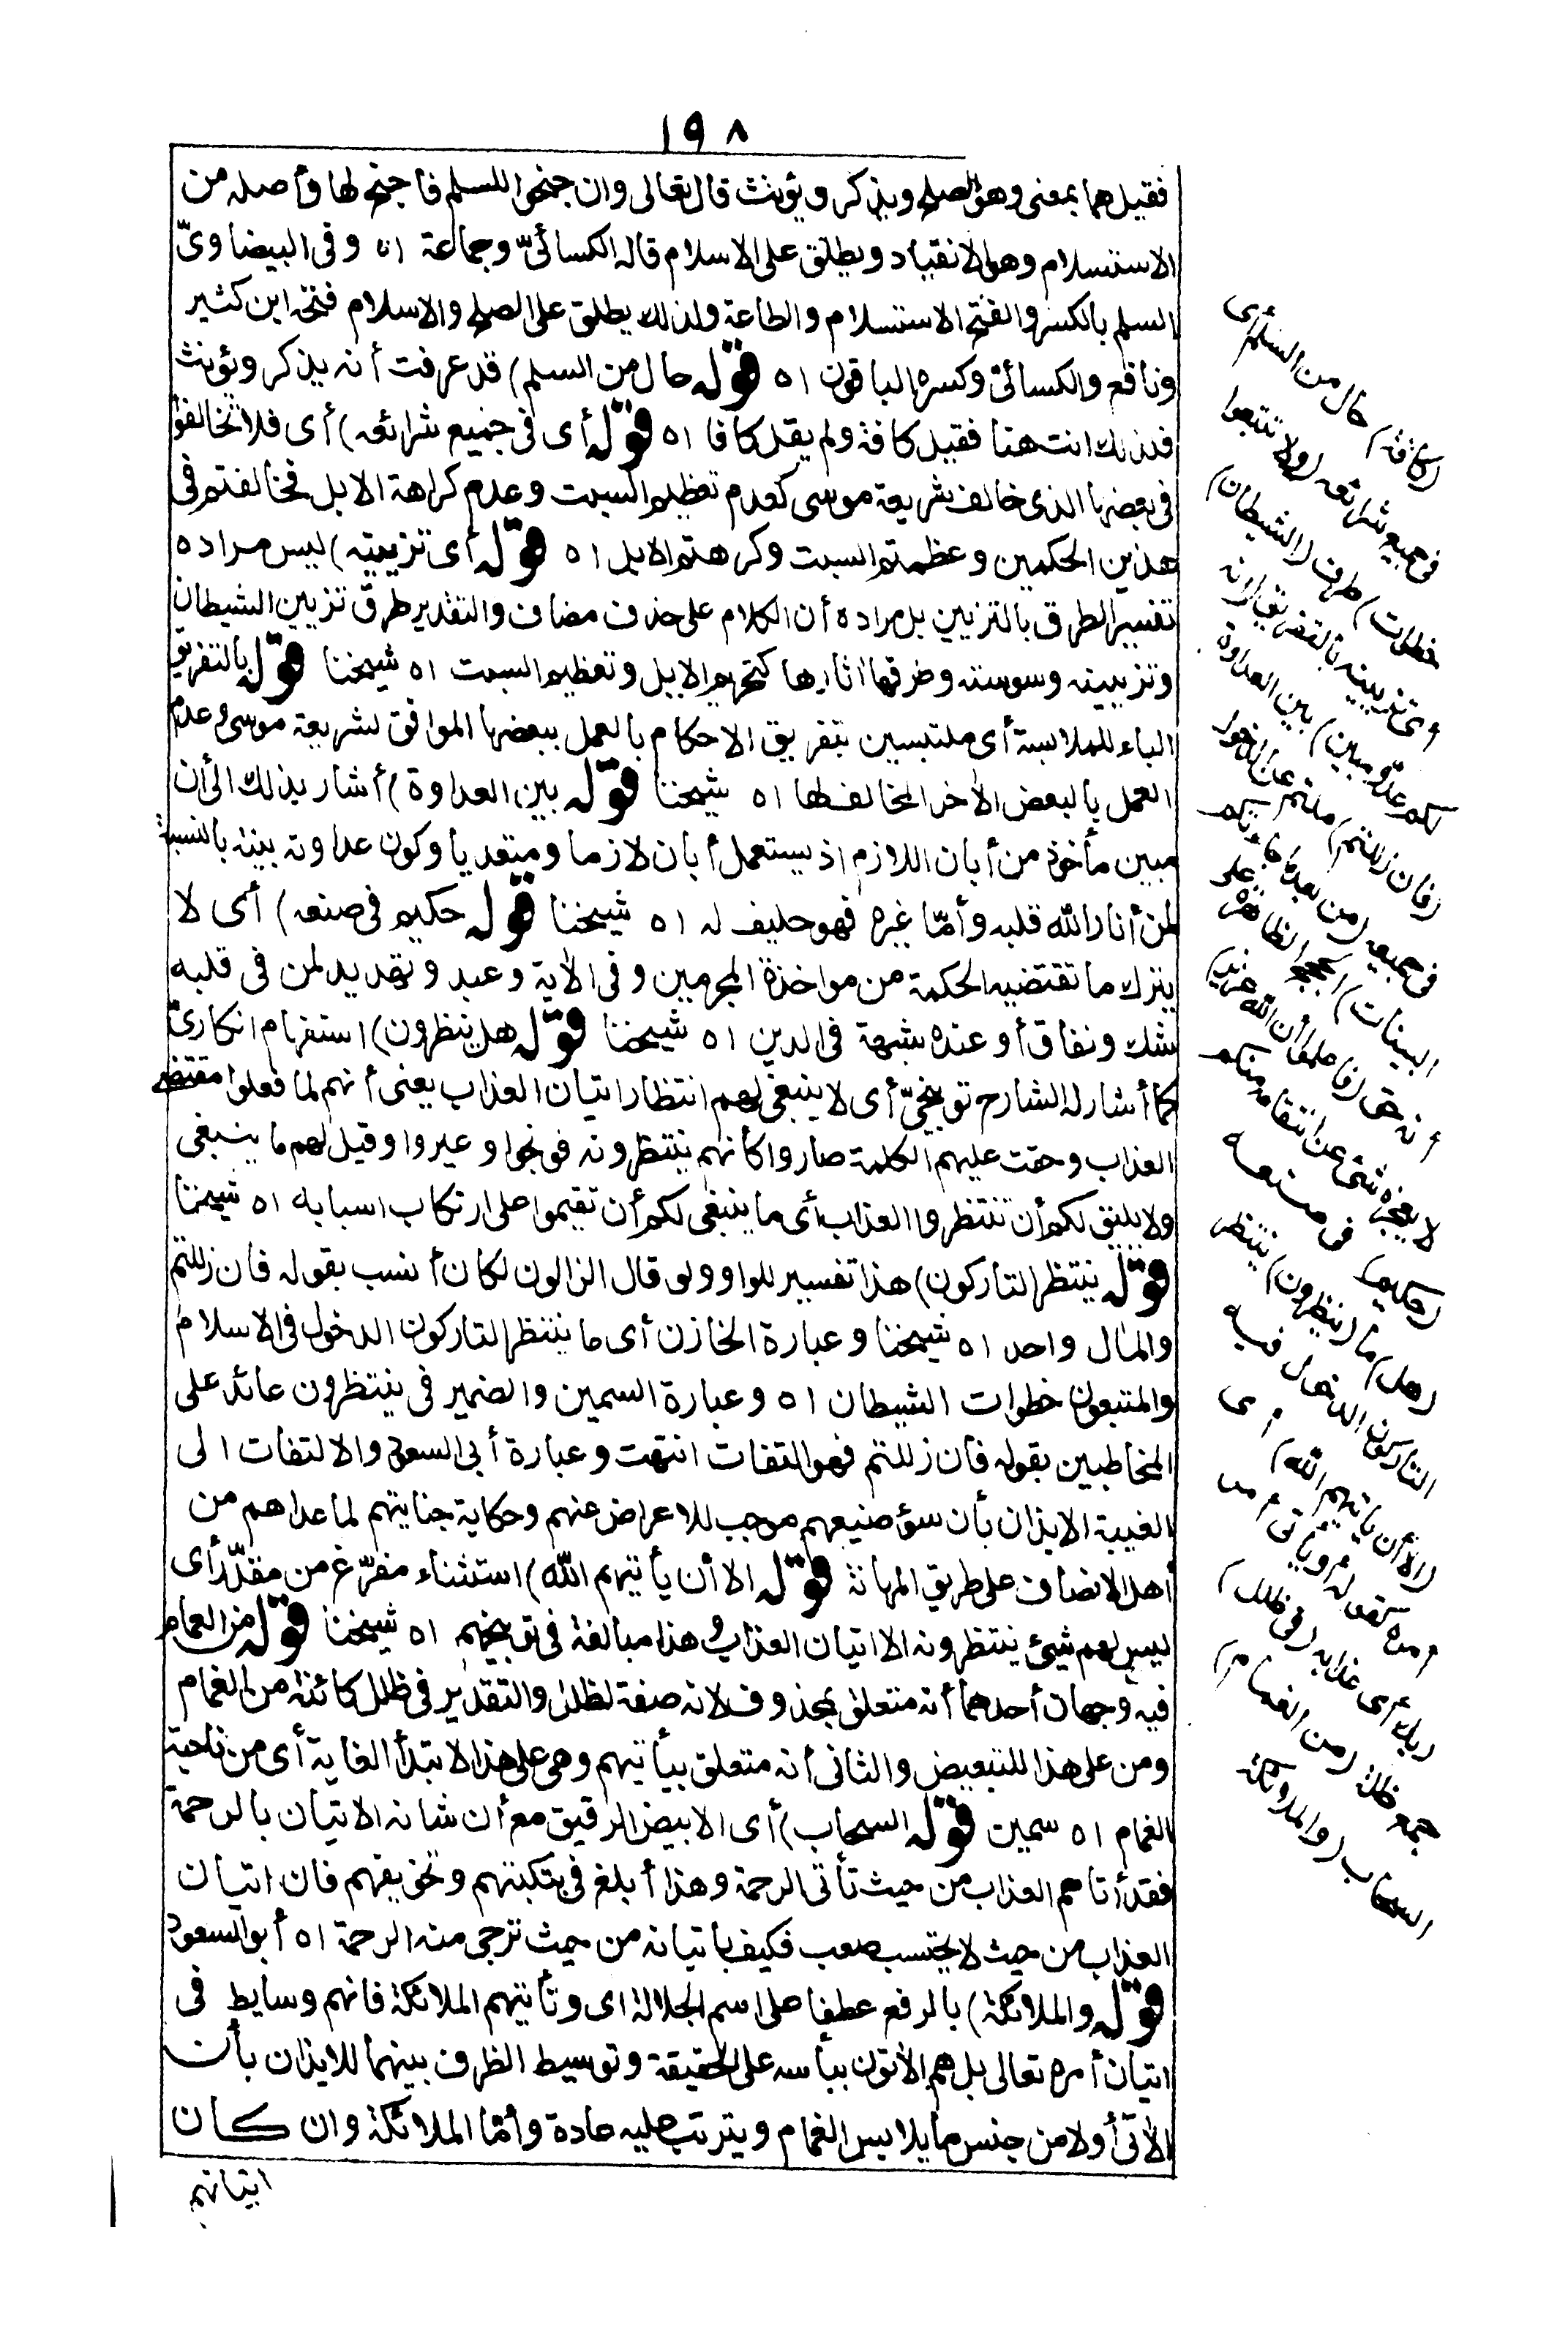 ١٩٨
فقيل هما بمعنى وهو الصلح ويذكر ويؤنث قال تعالى وان جنحوا للسلم فاجنح لها وأصله من
الاستسلام وهو الانقياد ويطلق على الاسلام قاله الكسائيّ وجماعة اه وفى البيضاويّ
السلم بالكسر والفتح الاستسلام والطاعة ولذلك يطلق على الصلح والاسلام فتحه ابن كثير
ونافع والكسائيّ وكسره الباقون اه قوله حال من السلم) قد عرفت أنه يذكر ويؤنث
فلذلك انت هنا فقيل كافة ولم يقل كافا اه قوله أى فى جميع شرائعه) أى فلا تخالفوا
فى بعضها الذى خالف شريعة موسى كعدم تعظيم السبت وعدم كراهة الابل فخالفتم فى
هذين الحكمين وعظمتم السبت وكرهتم الابل اه قوله أى تزيينه) ليس مراده
تفسير الطرق بالتزيين بل مراده أن الكلام على حذف مضاف والتقدير طرق تزيين الشيطان
وتزيينه وسوسته وطرقها اثارها كتحريم الابل وتعظيم السبت اه شيخنا قوله بالتفريق
الباء للملابسة أى ملتبسين بتفريق الاحكام بالعمل ببعضها الموافق لشريعة موسى وعدم
العمل بالبعض الآخر المخالف لها اه شيخنا قوله بين العداوة) أشار بذلك الى أن
مبين مأخوذ من أبان اللازم اذ يستعمل أبان لازما ومتعديا وكون عداوته بينة بالنسبة
لمن أنار الله قلبه وأمّا غيره فهو حليف له اه شيخنا قوله حكيم فى صنعه) أى لا
يترك ما تقتضيه الحكمة من مواخذة المجرمين وفى الآية وعيد وتهديد لمن فى قلبه
شك ونفاق أو عنده شبهة فى الدين اه شيخنا قوله هل ينظرون) استفهام انكارىّ
كما أشار له الشارح توبيخىّ أى لا ينبغى لهم انتظار اتيان العذاب يعنى أنهم لما فعلوا مقتضى
العذاب وحقت عليهم الكلمة صاروا كأنهم ينتظرونه فوبخوا وعيروا وقيل لهم ما ينبغى
ولا يليق لكم أن تنتظروا العذاب أى ما ينبغى لكم أن تقيموا على ارتكاب اسبابه اه شيخنا
قوله ينتظر التاركون) هذا تفسير للواو ولو قال الزالون لكان أنسب بقوله فان زللتم
والمآل واحد اه شيخنا وعبارة الخازن أى ما ينتظر التاركون الدخول فى الاسلام
والمتبعون خطوات الشيطان اه وعبارة السمين والضمير فى ينتظرون عائد على
المخاطبين بقوله فان زللتم فهو التفات انتهت وعبارة أبى السعود والالتفات الى
الغيبة الايذان بأن سؤ صنيعهم موجب للاعراض عنهم وحكاية جنايتهم لما عداهم من
أهل الانصاف على طريق المهانة قوله الا أن يأتيهم الله) استثناء مفرّغ من مقدّر أى
ليس لهم شيئ ينتظرونه الا اتيان العذاب وهذا مبالغة فى توبيخهم اه شيخنا قوله من الغمام
فيه وجهان أحدهما أنه متعلق بمحذوف لانه صفة لظلل والتقدير فى ظلل كائنة من الغمام
ومن على هذا للتبعيض والثانى أنه متعلق بيأتيهم وهى على هذا لابتدأ الغاية أى من ناحية
الغمام اه سمين قوله السحاب) أى الابيض الرقيق مع أن شانه الاتيان بالرحمة
فقد أتاهم العذاب من حيث تأتى الرحمة وهذا أبلغ فى تبكيتهم وتخويفهم فان اتيان
العذاب من حيث لا يحتسب صعب فكيف باتيانه من حيث ترجى منه الرحمة اه أبو السعود
قوله والملائكة) بالرفع عطفا على اسم الجلالة اى وتأتيهم الملائكة فانهم وسايط فى
اتيان أمره تعالى بل هم الآتون ببأسه على الحقيقة وتوسيط الظرف بينهما للايذان بأن
الآتى أولا من جنس ما يلابس الغمام ويترتب عليه عادة وأمّا الملائكة وان كان
اتيانهم
(كافة) حال من السلم أى
فى جميع شرائعه (ولا تتبعوا
خطوات) طرق (الشيطان)
أى تزيينه بالتفريق (انه
لكم عدوّ مبين) بين العداوة
(فان زللتم) ملتم عن الدخول
فى جميعه (من بعد ما جاءتكم
البينات) الحجج الظاهرة على
أنه حق (فاعلموا أن الله عزيز)
لا يعجزه شئ عن انتقامه منكم
(حكيم) فى صنعه
(هل) ما (ينظرون) ينتظر
التاركون الدخول فيه
(الا أن يأتيهم الله) أى
أمره كقوله أو يأتى أمر
ربك أى عذابه (فى ظلل)
جمع ظلة (من الغمام)
السحاب (والملائكة